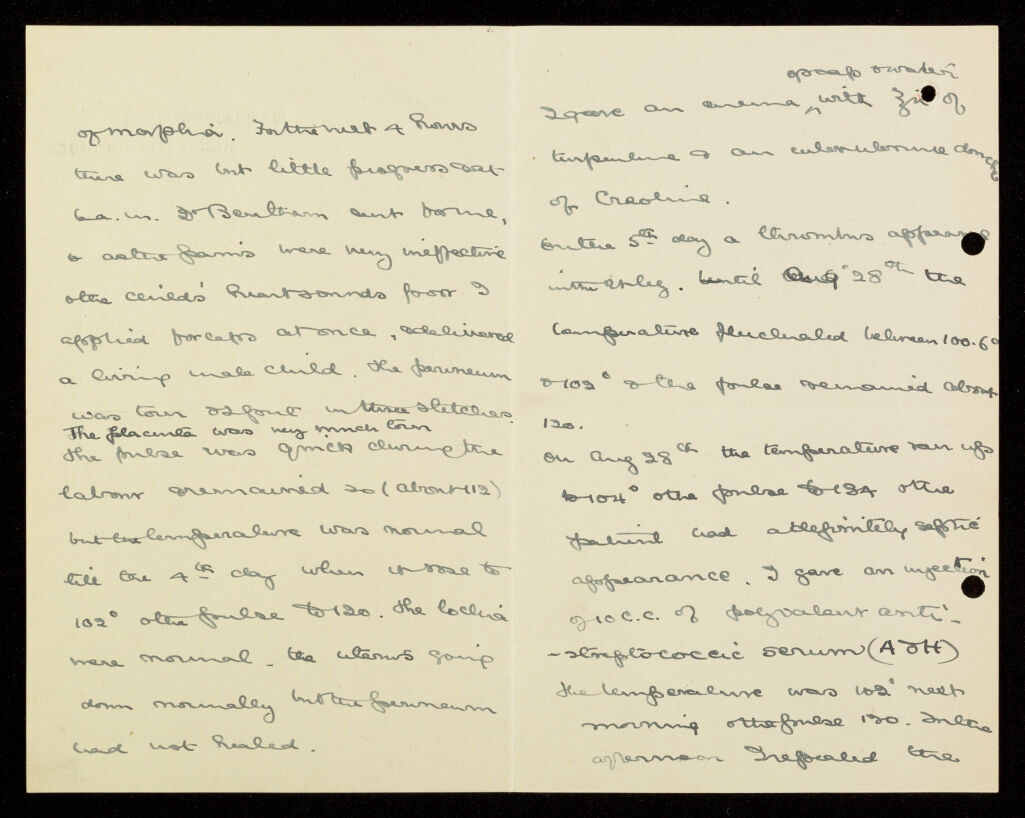 of morphia. For the next 4 hours
there was but little progress & at
6 a.m. Dr sent for me,
& as the pains were very ineffective
& the child's heart sounds poor I
applied forceps at once, & delivered
a living male child. The perineum
was torn & I put in three stitches.
The placenta was very much torn
The pulse was quick during the
labour & remained so (about 112)
but the temperature was normal
till the 4th day when it rose to
102° & the pulse to 120. The lochia
were normal - the uterus going
down normally but the perineum
had not healed.
of soap & water
I gave an enema ^ with ℥ii of
turpentine & an intrauterine douche
of Creoline.
On the 5th day a thrombus appeared
in the leg. Until Aug 28th the
temperature fluctuated between 100.6°
& 102° & the pulse remained about
120.
On Aug 28th the temperature ran up
to 104° & the pulse to 134 & the
patient had a definitely septic
appearance. I gave an injection
of 10 c.c. of polyvalent anti-
-streptococcic serum (A & H)
The temperature was 102° next
morning & the pulse 120. In the
afternoon I repeated the